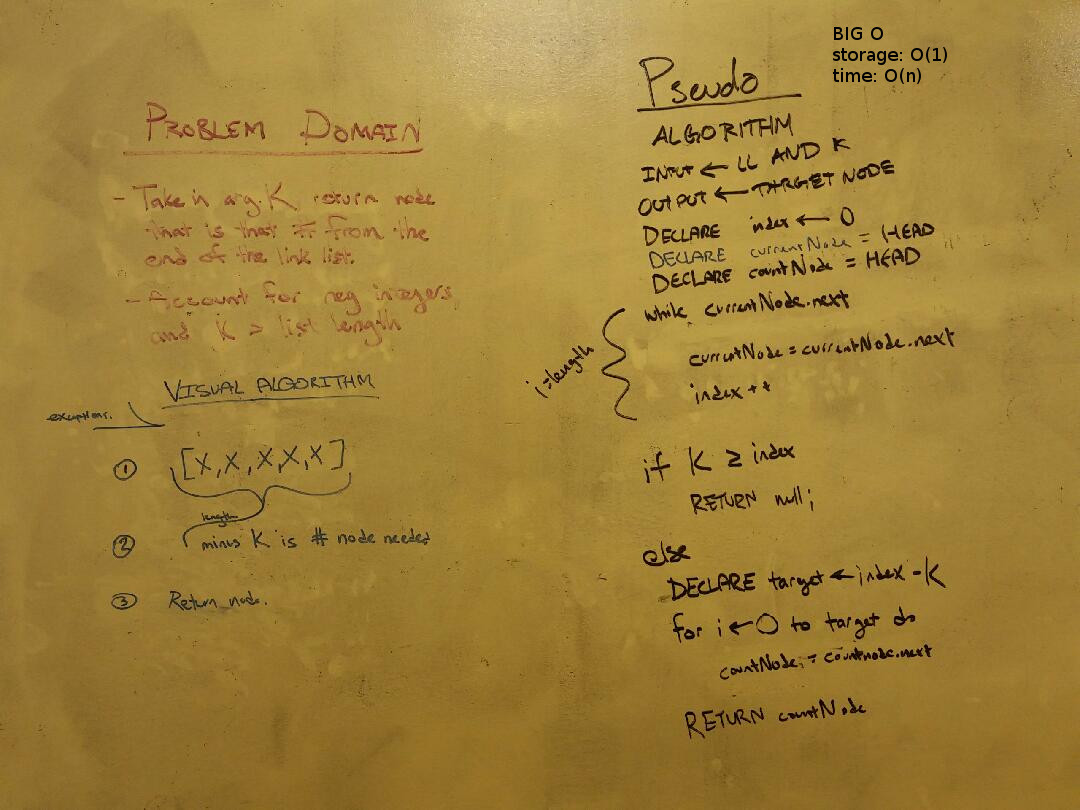 PROBLEM DOMAIN
- Take in arg. K return node
that is that # from the
end of the link list.
- Account for neg integers,
and K > list length
VISUAL ALGORITHM
exceptions.
① [X,X,X,X,X]
length
② minus K is # node needed
③ Return node.
BIG O
storage: O(1)
time: O(n)
Pseudo
ALGORITHM
INPUT ← LL AND K
OUTPUT ← TARGET NODE
DECLARE index ← 0
DECLARE currentNode = HEAD
DECLARE countNode = HEAD
while currentNode.next
i=length
currentNode = currentNode.next
index ++
if K ≥ index
RETURN null;
else
DECLARE target ← index - K
for i ← 0 to target do
countNode = countnode.next
RETURN countNode